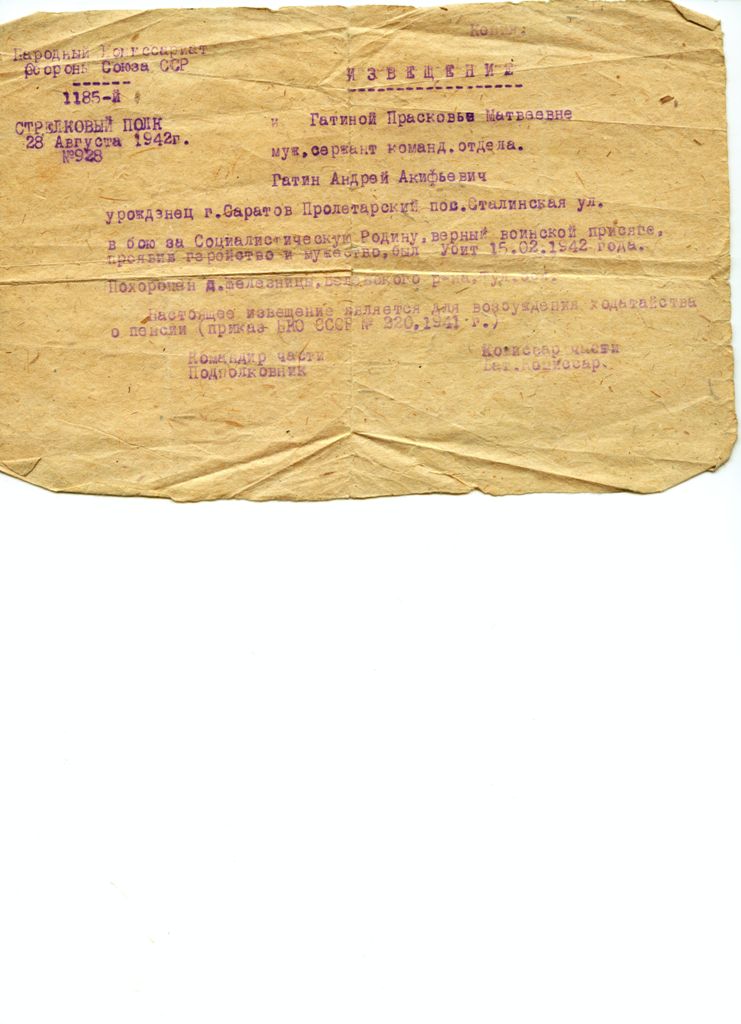 Копия.
Народный Комиссариат
Обороны Союза ССР
ИЗВЕЩЕНИЕ
1185-й
СТРЕЛКОВЫЙ ПОЛК
28 Августа 1942г.
№928
и Гатиной Прасковье Матвеевне
муж,сержант команд.отдела.
Гатин Андрей Акифьевич
урождзнец г.Саратов Пролетарский пос.Сталинская ул.
в бою за Социалистическую Родину,верный воинской присяге,
проявив геройство и мужество,был Убит 15.02.1942 года.
Похоронен д.Железницы, р-на,
Настоящее извещение является для возбуждения ходатайства
о пенсии (приказ СССР № 220.1941 г.)
Командир части
Подполковник
Комиссар части
Бат.Комиссар.